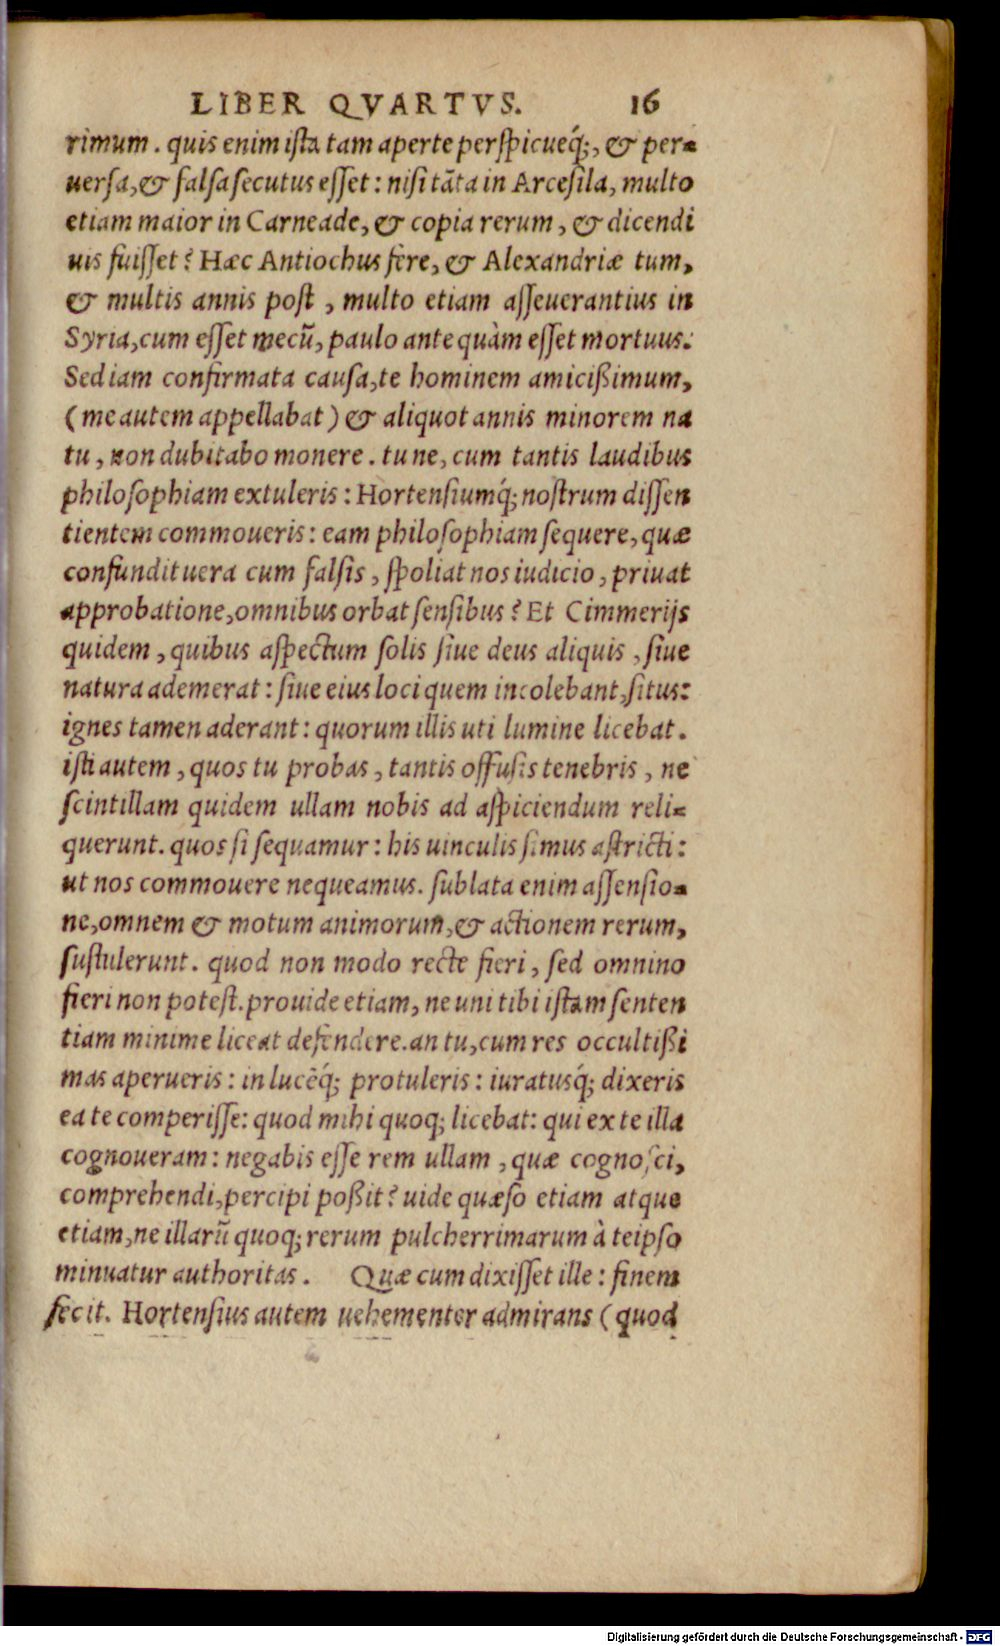 LIBER QVARTVS. 16
rimum. quis enim ista tam aperte perspicueq́;, & per-
uersa, & falsa secutus esset: nisi tāta in Arcesila, multo
etiam maior in Carneade, & copia rerum, & dicendi
uis fuisset? Hæc Antiochus fere, & Alexandriæ tum,
& multis annis post, multo etiam asseuerantius in
Syria, cum esset mecū, paulo ante quàm esset mortuus.
Sed iam confirmata causa, te hominem amicißimum,
(me autem appellabat) & aliquot annis minorem na
tu, non dubitabo monere. tu ne, cum tantis laudibus
philosophiam extuleris: Hortensiumq́; nostrum dissen
tientem commoueris: eam philosophiam sequere, quæ
confundit uera cum falsis, spoliat nos iudicio, priuat
approbatione, omnibus orbat sensibus? Et Cimmerijs
quidem, quibus aspectum solis siue deus aliquis, siue
natura ademerat: siue eius loci quem incolebant, situs:
ignes tamen aderant: quorum illis uti lumine licebat.
isti autem, quos tu probas, tantis offusis tenebris, ne
scintillam quidem ullam nobis ad aspiciendum reli-
querunt. quos si sequamur: his uinculis simus astricti:
ut nos commouere nequeamus. sublata enim assensio-
ne, omnem & motum animorum, & actionem rerum,
sustulerunt. quod non modo recte fieri, sed omnino
fieri non potest. prouide etiam, ne uni tibi istam senten
tiam minime liceat defendere. an tu, cum res occultißi
mas aperueris: in lucēq́; protuleris: iuratusq́; dixeris
ea te comperisse: quod mihi quoq; licebat: qui ex te illa
cognoueram: negabis esse rem ullam, quæ cognosci,
comprehendi, percipi poßit? uide quæso etiam atque
etiam, ne illarū quoq; rerum pulcherrimarum à teipso
minuatur authoritas. Quæ cum dixisset ille: finem
fecit. Hortensius autem uehementer admirans (quod
Digitalisierung gefördert durch die Deutsche Forschungsgemeinschaft - DFG